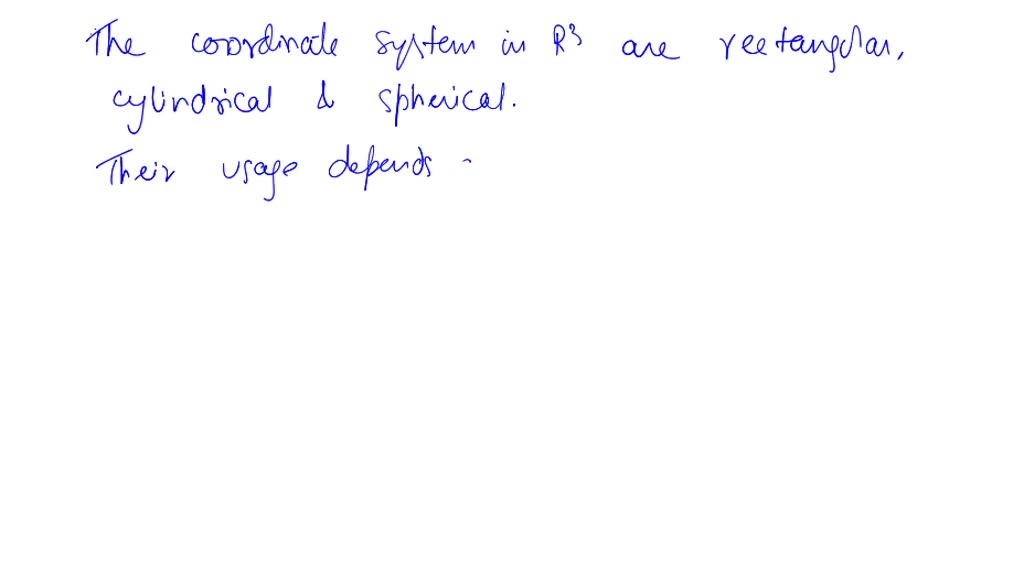 The coordinate system in R³ are rectangular,
cylindrical & spherical.
Their usage depends